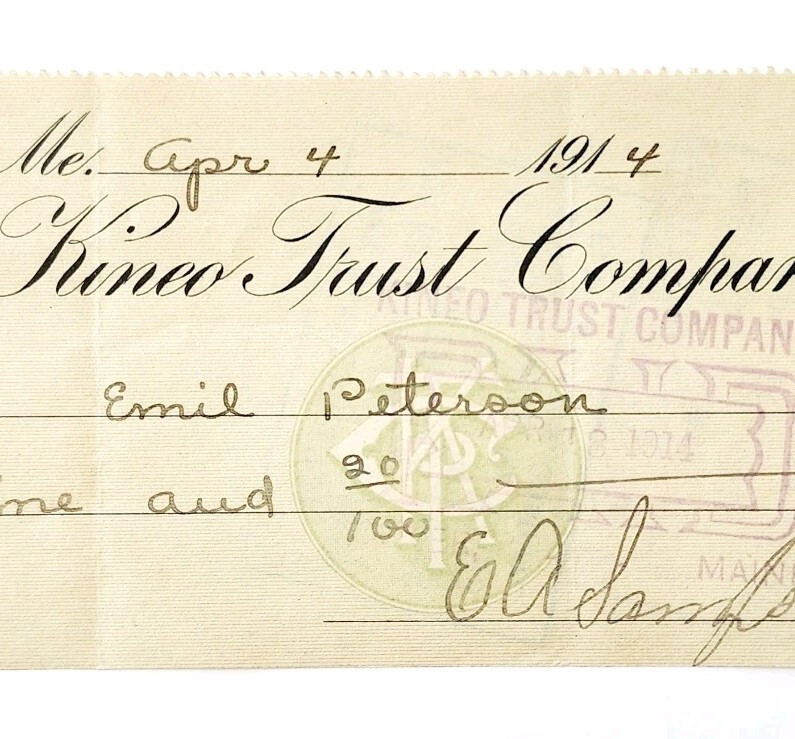 Me. Apr 4 1914
Kineo Trust Compan
KINEO TRUST COMPAN
Emil Peterson
PAID
8 1914
ne and 20/100
MAIN
E A Samps